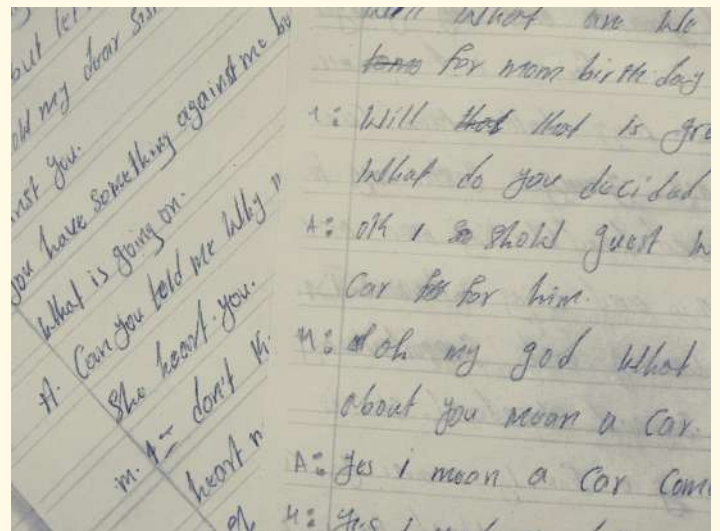 but let
old my dear sis
inst you.
you have something against me bu
what is going on.
A. Can you told me why
She heart you.
m. I don't
heart
will what are we
for mom birth day
: Will that that is gre
What do you decided
A: ok i so shold guest
Car for for him.
M: oh my god what
about you mean a car.
A: yes i mean a car com
M: yes